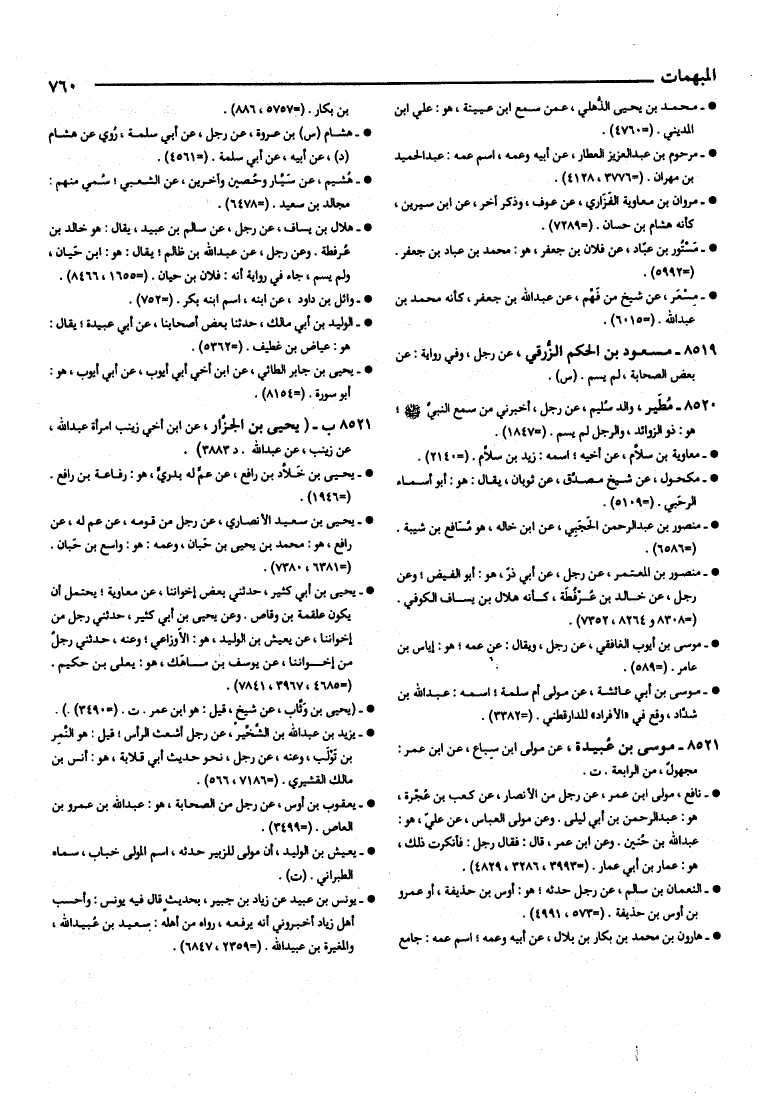 المبهمات ٧٦٠
● ـ محمد بن يحيى الذُّهلي ، عمن سمع ابن عيينة ، هو : علي ابن
المديني . (=٤٧٦٠) .
● ـ مرحوم بن عبدالعزيز العطار ، عن أبيه وعمه ، اسم عمه : عبدالحميد
بن مهران . (=٣٧٧٦ ، ٤١٢٨) .
● ـ مروان بن معاوية الفَزَاري ، عن عوف ، وذكر آخر ، عن ابن سيرين ،
كأنه هشام بن حسان . (=٧٢٨٩) .
● ـ مَسْتُور بن عبَّاد ، عن فلان بن جعفر ، هو : محمد بن عباد بن جعفر .
(=٥٩٩٢) .
● ـ مِسْعَر ، عن شيخ من فَهْم ، عن عبدالله بن جعفر ، كأنه محمد بن
عبدالله . (=٦٠١٥) .
٨٥١٩ ـ مسعود بن الحكم الزُّرقي ، عن رجل ، وفي رواية : عن
بعض الصحابة ، لم يسم . (س) .
٨٥٢٠ ـ مُطَير ، والد سُليم ، عن رجل ، أخبرني من سمع النبيَّ ﷺ ؛
هو : ذو الزوائد ، والرجل لم يسم . (=١٨٤٧) .
● ـ معاوية بن سلاَّم ، عن أخيه ؛ اسمه : زيد بن سلاَّم . (=٢١٤٠) .
● ـ مكحول ، عن شيخ مصدَّق ، عن ثوبان ، يقال : هو : أبو أسماء
الرحَبي . (=٥١٠٩) .
● ـ منصور بن عبدالرحمن الحَجَبي ، عن ابن خاله ، هو مُسَافع بن شيبة .
(=٦٥٨٦) .
● ـ منصور بن المعتمر ، عن رجل ، عن أبي ذرّ ، هو : أبو الفيض ؛ وعن
رجل ، عن خالد بن عُرْفُطَة ، كأنه هلال بن يساف الكوفي .
(=٨٣٠٨ و ٨٢٦٤ ، ٧٣٥٢) .
● ـ موسى بن أيوب الغافقي ، عن رجل ، ويقال : عن عمه ؛ هو : إياس بن
عامر . (=٥٨٩) .
● ـ موسى بن أبي عائشة ، عن مولى أم سلمة ؛ اسمه : عبدالله بن
شدَّاد ، وقع في «الأفراد» للدارقطني . (=٣٣٨٢) .
٨٥٢١ ـ موسى بن عُبيدة ، عن مولى ابن سِباع ، عن ابن عمر :
مجهولٌ ، من الرابعة . ت .
● ـ نافع ، مولى ابن عمر ، عن رجل من الأنصار ، عن كعب بن عُجْرة ،
هو : عبدالرحمن بن أبي ليلى . وعن مولى العباس ، عن عليّ ، هو :
عبدالله بن حُنين . وعن ابن عمر ، قال : فقال رجل : فأنكرت ذلك ،
هو : عمار بن أبي عمار . (=٣٩٩٣ ، ٣٢٨٦ ، ٤٨٢٩) .
● ـ النعمان بن سالم ، عن رجل حدثه ؛ هو : أوس بن حذيفة ، أو عمرو
بن أوس بن حذيفة . (=٥٧٣ ، ٤٩٩١) .
● ـ هارون بن محمد بن بكار بن بلال ، عن أبيه وعمه ؛ اسم عمه : جامع
بن بكار . (=٥٧٥٧ ، ٨٨٦) .
● ـ هشام (س) بن عروة ، عن رجل ، عن أبي سلمة ، رُوي عن هشام
(د) ، عن أبيه ، عن أبي سلمة . (=٤٥٦١) .
● ـ هُشيم ، عن سَيَّار وحُصين وآخرين ، عن الشعبي ؛ سُمي منهم :
مجالد بن سعيد . (=٦٤٧٨) .
● ـ هلال بن يساف ، عن رجل ، عن سالم بن عبيد ، يقال : هو خالد بن
عُرفطة . وعن رجل ، عن عبدالله بن ظالم ؛ يقال : هو : ابن حَيان ،
ولم يسم ، جاء في رواية أنه : فلان بن حيان . (=١٦٥٥ ، ٨٤٦٦) .
● ـ وائل بن داود ، عن ابنه ، اسم ابنه بكر . (=٧٥٢) .
● ـ الوليد بن أبي مالك ، حدثنا بعض أصحابنا ، عن أبي عبيدة ؛ يقال :
هو : عياض بن غطيف . (=٥٣٦٢) .
● ـ يحيى بن جابر الطائي ، عن ابن أخي أبي أيوب ، عن أبي أيوب ، هو :
أبو سورة . (=٨١٥٤) .
٨٥٢١ ب ـ ( يحيى بن الجزَّار ، عن ابن أخي زينب امرأة عبدالله ،
عن زينب ، عن عبدالله . د ٣٨٨٣)
● ـ يحيى بن خَلاَّد بن رافع ، عن عمٍّ له بدريٍّ ، هو : رفاعة بن رافع .
(=١٩٤٦) .
● ـ يحيى بن سعيد الأنصاري ، عن رجل من قومه ، عن عم له ، عن
رافع ، هو : محمد بن يحيى بن حَبان ، وعمه : هو : واسع بن حَبان .
(=٦٣٨١ ، ٧٣٨٠) .
● ـ يحيى بن أبي كثير ، حدثني بعض إخواننا ، عن معاوية ؛ يحتمل أن
يكون علقمة بن وقاص . وعن يحيى بن أبي كثير ، حدثني رجل من
إخواننا ، عن يعيش بن الوليد ، هو : الأوزاعي ؛ وعنه ، حدثني رجلٌ
من إخواننا ، عن يوسف بن ماهَك ، هو : يعلى بن حكيم .
(=٤٦٨٥ ، ٣٩٦٧ ، ٧٨٤١) .
● ـ (يحيى بن وَثَّاب ، عن شيخ ، قيل : هو ابن عمر . ت . (=٣٤٩٠) . ) .
● ـ يزيد بن عبدالله بن الشِّخِّير ، عن رجل أشعث الرأس ؛ قيل : هو النَّمِر
بن تَوْلَب ، وعنه ، عن رجل ، نحو حديث أبي قلابة ، هو : أنس بن
مالك القشيري . (=٧١٨٦ ، ٥٦٦) .
● ـ يعقوب بن أوس ، عن رجل من الصحابة ، هو : عبدالله بن عمرو بن
العاص . (=٣٤٩٩) .
● ـ يعيش بن الوليد ، أن مولى للزبير حدثه ، اسم المولى خباب ، سماه
الطبراني . (ت) .
● ـ يونس بن عبيد عن زياد بن جبير ، بحديث قال فيه يونس : وأحسب
أهل زياد أخبروني أنه يرفعه ، رواه من أهله : سعيد بن عُبيدالله ،
والمغيرة بن عبيدالله . (=٢٣٥٩ ، ٦٨٤٧) .